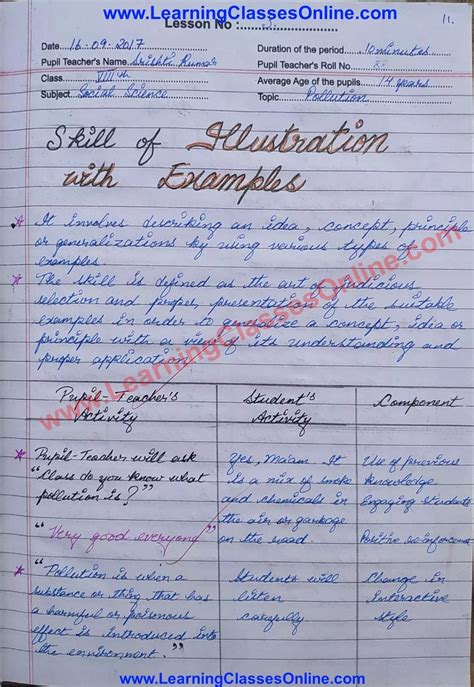 www.LearningClassesOnline.com
11.
Lesson No :
Date 16-09-2017 Duration of the period 10 minutes
Pupil Teacher's Name Srishti Kumar Pupil Teacher's Roll No 88
Class VIIIth Average Age of the pupils 14 years
Subject Social Science Topic Pollution
Skill of Illustration
with Examples
It involves describing an idea, concept, principle
or generalizations by using various types of
examples.
The skill is defined as the art of judicious
selection and proper presentation of the suitable
examples in order to generalize a concept, idea or
principle with a view of its understanding and
proper application.
www.LearningClassesOnline.com
Pupil-Teacher's Student's Component
Activity Activity
Pupil-Teacher will ask Yes, Ma'am. It Use of previous
"Class do you know what is a mix of smoke knowledge
pollution is?" and chemicals in Engaging Students
the air or garbage
"Very good everyone" on the road. Positive reinforcement
"Pollution is when a Students will Change in
substance or thing that has listen Interactive
a harmful or poisonous carefully style
effect is introduced into
the environment."
www.LearningClassesOnline.com